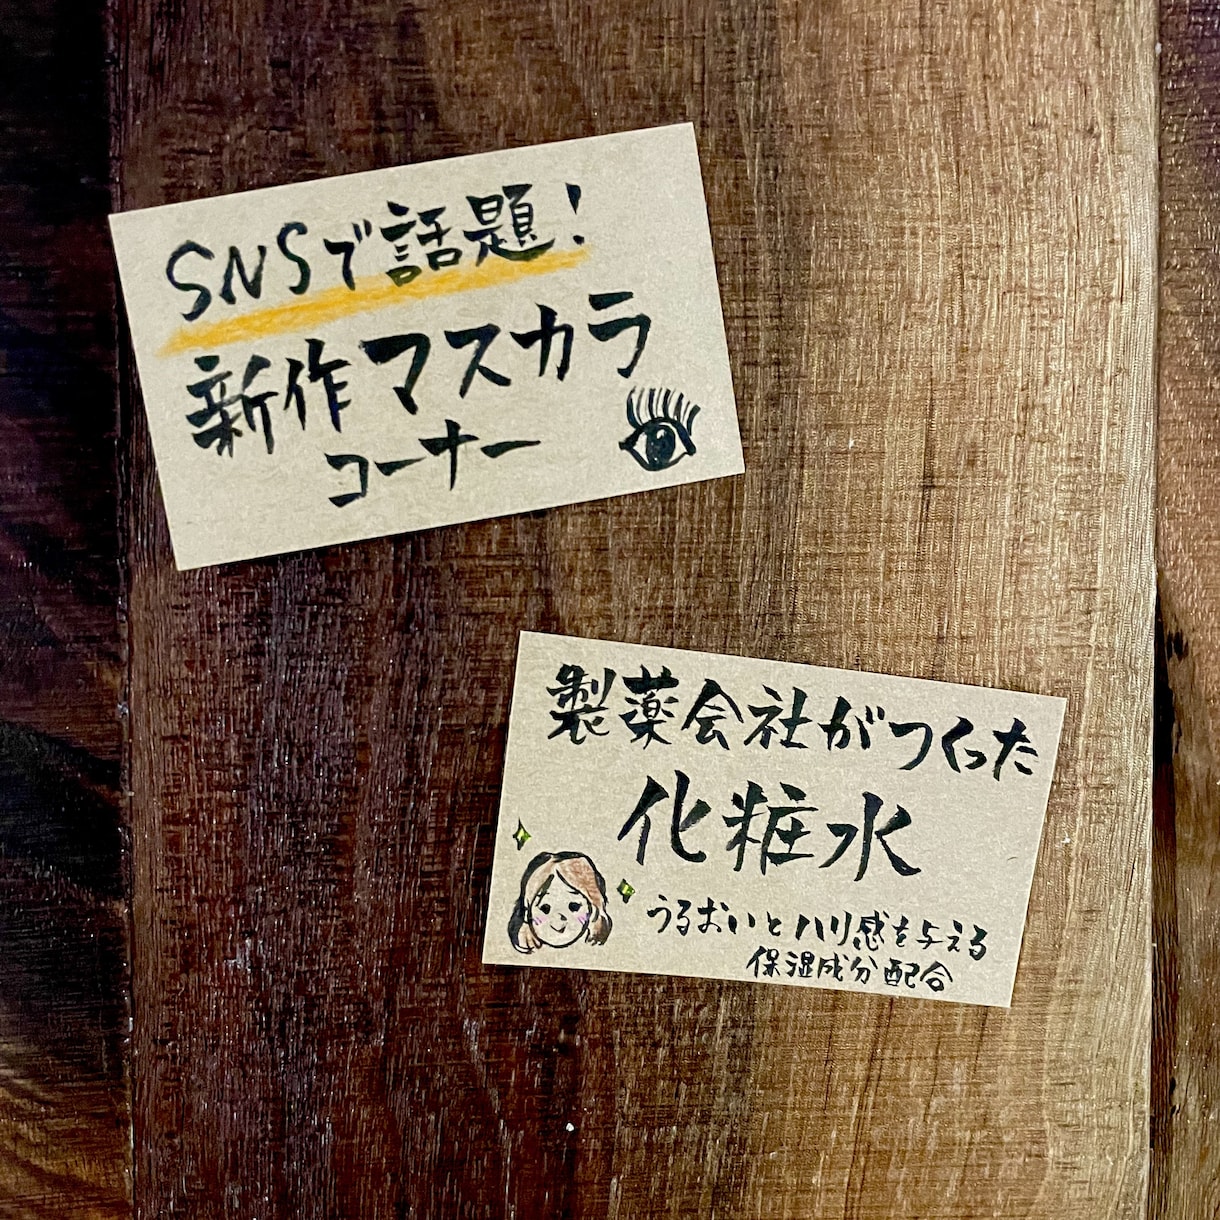 SNSで話題！
新作マスカラ
コーナー
製薬会社がつくった
化粧水
うるおいとハリ感を与える
保湿成分配合